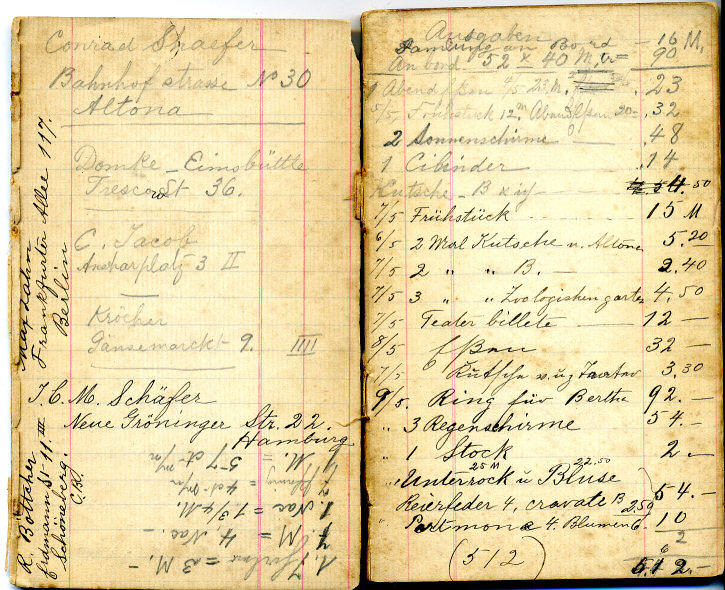 Conrad Shaefer
Bahnhofstrasse No 30
Altona
Domke - Eimsbüttle
Trescowst 36.
C. Jacob
Ansharplatz 3 II
Kröcher
Gänsemarckt 9. IIII
J. C. M. Schäfer
Neue Gröninger Str. 22.
Hamburg
1 M. = 57 ct. m/n
= 4 ct. m/n
1 Nac = 1 3/4 M.
7 M = 4 Nac. -
= 3 M. -
Max Jahn
Frankfurter Allee 117.
Berlin
R. Böttcher
St. 11. III
Schöneberg.
Ausgaben
an Bord - 16 M,
An bord 52 x 40 M, 90
1 Abend 4/5 23 M. . 23
5/5, Frühstück 12 m . 32
2 Sonnenschirme - . 48
1 Cilinder - . 14
Kutsche - B
7/5 Frühstück - 15 M
6/5 2 Mal Kutsche n. Altona 5.20
7/5 2 " " B. - 2.40
7/5 3 " " Zoologishen garten 4.50
7/5 Teater billete - 12 -
8/5 32 -
7/5 3.30
9/5. Ring für Bertha 92. -
" 3 Regenschirme 54. -
" 1 Stock 2. -
" Unterrock u Bluse
25 M 22.50
54. -
Reierfeder 4, cravate B 2.50
" Portmone 4. Blumen 6. 10
2
(512)
6
512. -